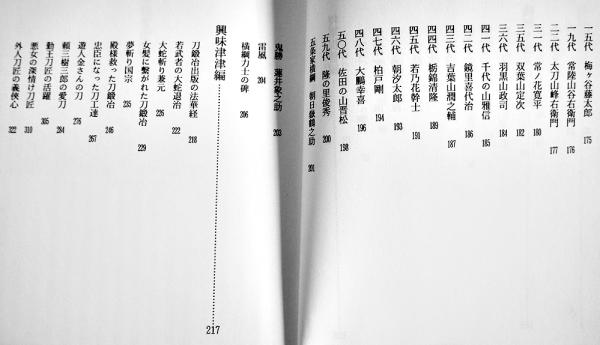 一五代 梅ヶ谷藤太郎 175
一九代 常陸山谷右衛門 176
二二代 太刀山峰右衛門 177
三一代 常ノ花寛平 180
三五代 双葉山定次 182
三六代 羽黒山政司 184
四一代 千代の山雅信 185
四二代 鏡里喜代治 186
四三代 吉葉山潤之輔 187
四四代 栃錦清隆 189
四五代 若乃花幹士 191
四六代 朝汐太郎 193
四七代 柏戸剛 194
四八代 大鵬幸喜 196
五〇代 佐田の山晋松 198
五九代 隆の里俊秀 200
五条家横綱 朝日嶽鶴之助 201
鬼勝 蓮井象之助 203
雷風 204
横綱力士の碑 206
興味津津編 217
刀鍛冶出版の法華経 218
若武者の大蛇退治 222
大蛇斬り兼元 226
女髪に繋がれた刀鍛冶 229
夢斬り国宗 235
殿様救った刀鍛冶 246
忠臣になった刀工達 267
遊人金さんの刀 276
頼三樹三郎の愛刀 284
勤王刀匠の活躍 305
悪女の深情け刀匠 310
外人刀匠の義侠心 322